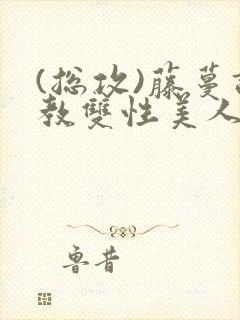 (总攻)藤蔓
教双性美人
鲁昔